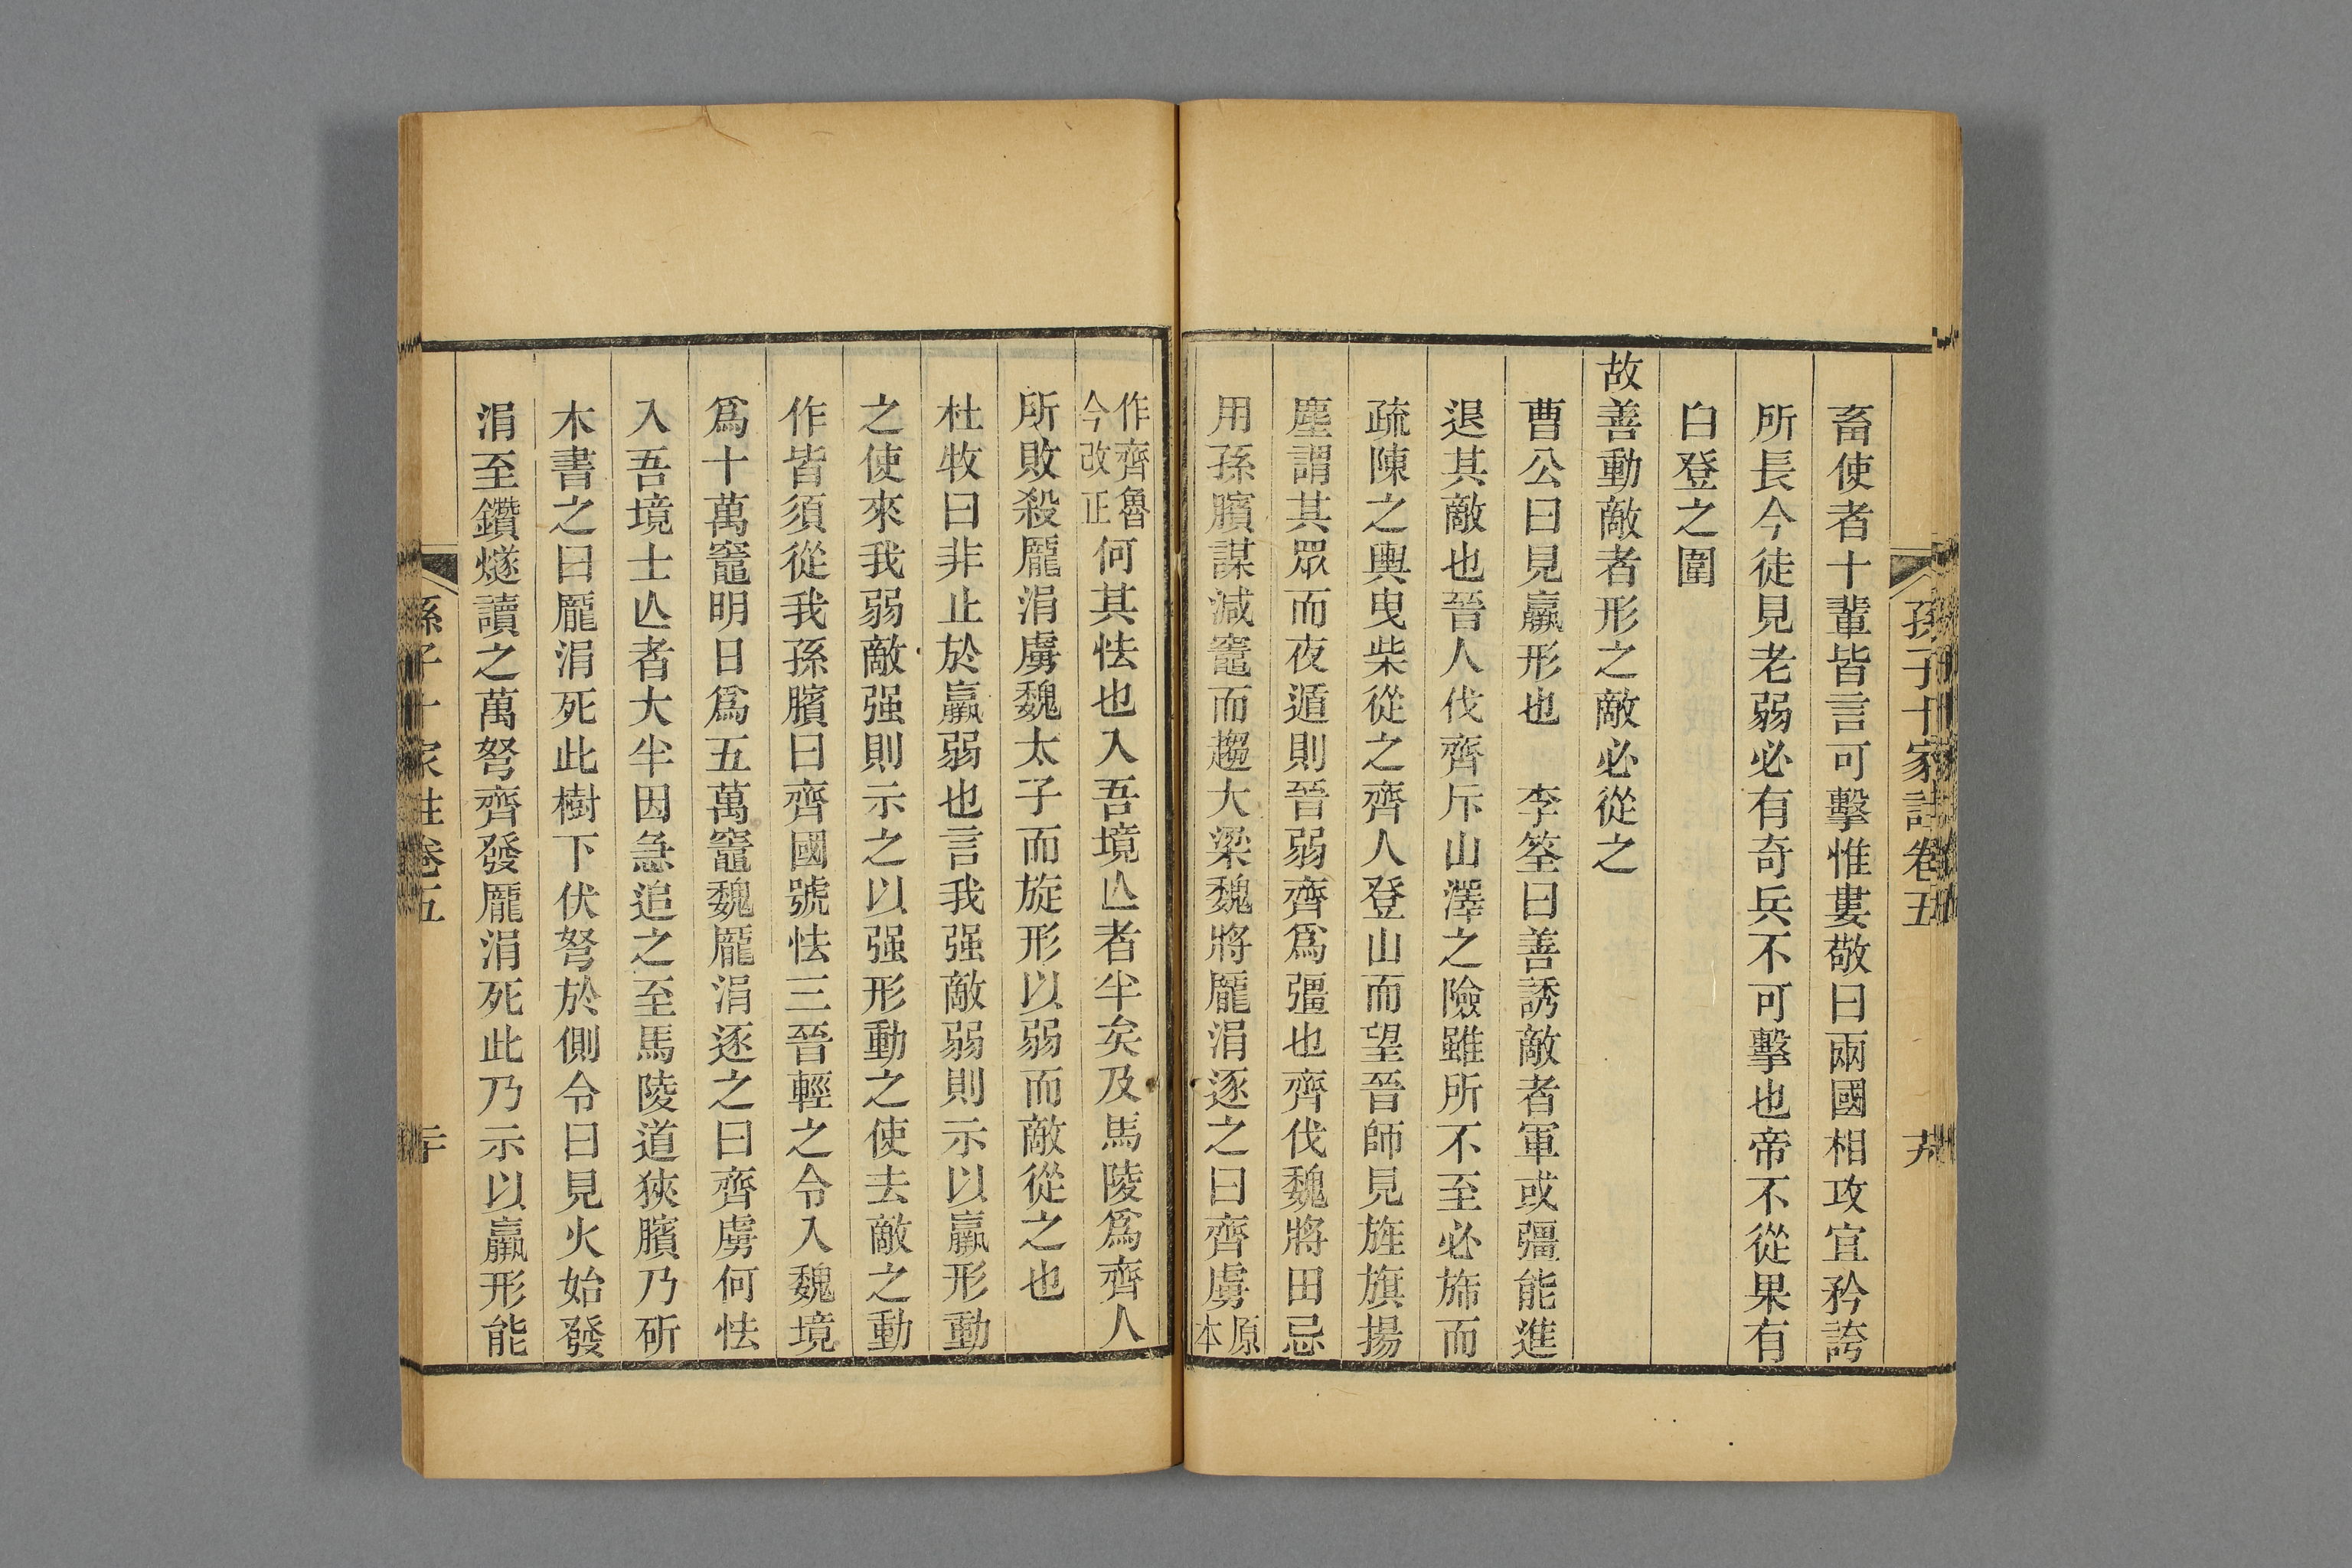 孫子十家註卷五 十九
畜使者十輩皆言可擊惟婁敬曰兩國相攻宜矜誇
所長今徒見老弱必有奇兵不可擊也帝不從果有
白登之圍
故善動敵者形之敵必從之
曹公曰見羸形也 李筌曰善誘敵者軍或彊能進
退其敵也晉人伐齊斥山澤之險雖所不至必旆而
疏陳之輿曳柴從之齊人登山而望晉師見旌旗揚
塵謂其眾而夜遁則晉弱齊爲彊也齊伐魏將田忌
用孫臏謀減竈而趨大梁魏將龐涓逐之曰齊虜原本
作齊魯今改正何其怯也入吾境亾者半矣及馬陵爲齊人
所敗殺龐涓虜魏太子而旋形以弱而敵從之也
杜牧曰非止於羸弱也言我强敵弱則示以羸形動
之使來我弱敵强則示之以强形動之使去敵之動
作皆須從我孫臏曰齊國號怯三晉輕之令入魏境
爲十萬竈明日爲五萬竈魏龐涓逐之曰齊虜何怯
入吾境士亾者大半因急追之至馬陵道狹臏乃斫
木書之曰龐涓死此樹下伏弩於側令曰見火始發
涓至鑽燧讀之萬弩齊發龐涓死此乃示以羸形能
孫子十家註卷五 二十